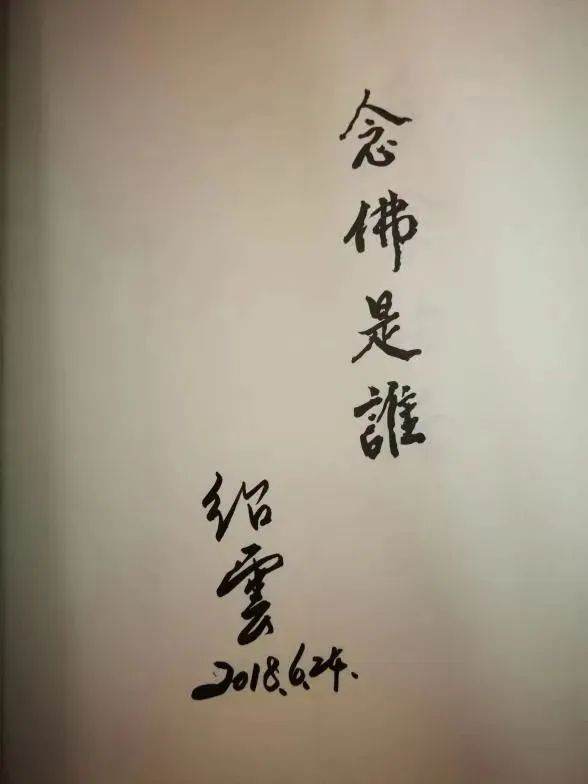 念佛是誰
紹雲
2018.6.24.